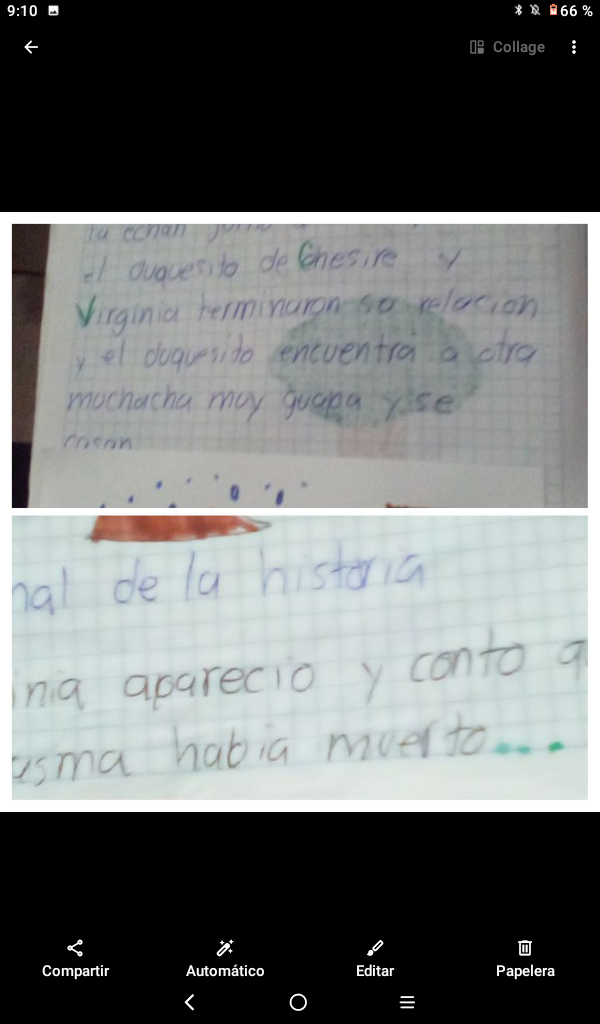 9:10
66 %
Collage
la echan
el duquesito de Chesire y
Virginia terminaron su relacion
y el duquesito encuentra a otra
muchacha muy guapa y se
casan
nal de la historia
inia aparecio y conto q
asma habia muerto...
Compartir
Automático
Editar
Papelera